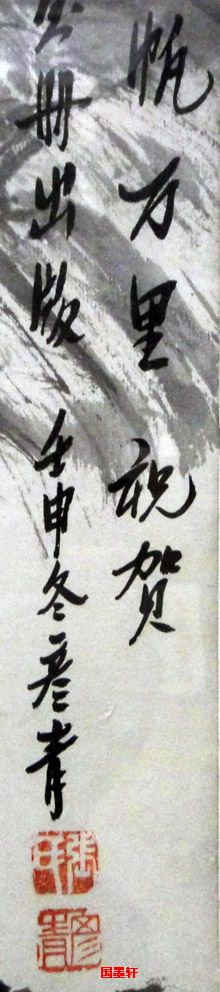 帆万里 祝贺
册出版 壬申冬彦青
国墨轩